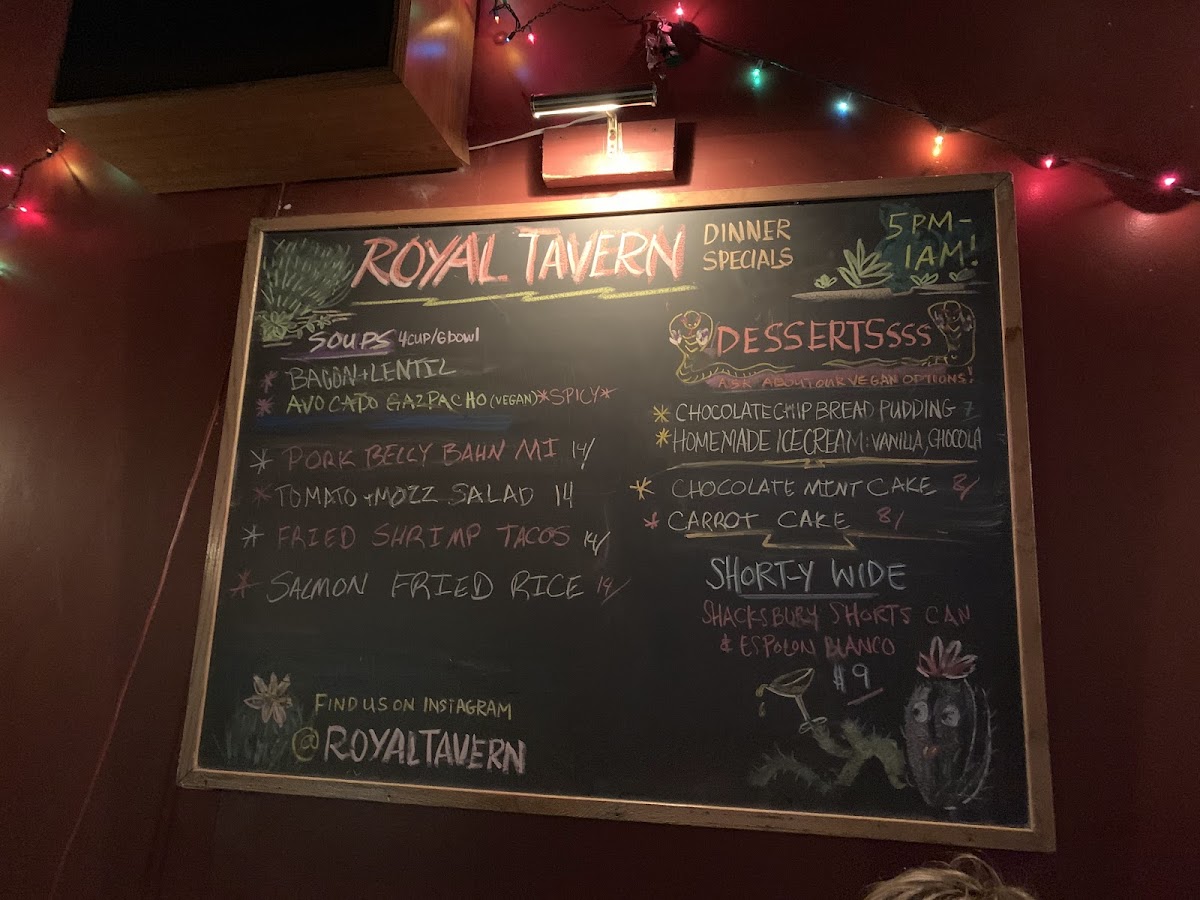 ROYAL TAVERN
DINNER
SPECIALS
5PM-
1AM!
SOUPS 4CUP/6bowl
* BACON + LENTIL
* AVOCADO GAZPACHO (VEGAN) *SPICY*
* PORK BELLY BAHN MI 14/
* TOMATO + MOZZ SALAD 14
* FRIED SHRIMP TACOS 14/
* SALMON FRIED RICE 14/
FIND US ON INSTAGRAM
@ROYALTAVERN
DESSERTSsss
ASK ABOUT OUR VEGAN OPTIONS!
* CHOCOLATE CHIP BREAD PUDDING 7
* HOMEMADE ICECREAM: VANILLA, CHOCOLA
* CHOCOLATE MINT CAKE 8/
* CARROT CAKE 8/
SHORT-Y WIDE
SHACKSBURY SHORTS CAN
& ESPOLON BLANCO
$9